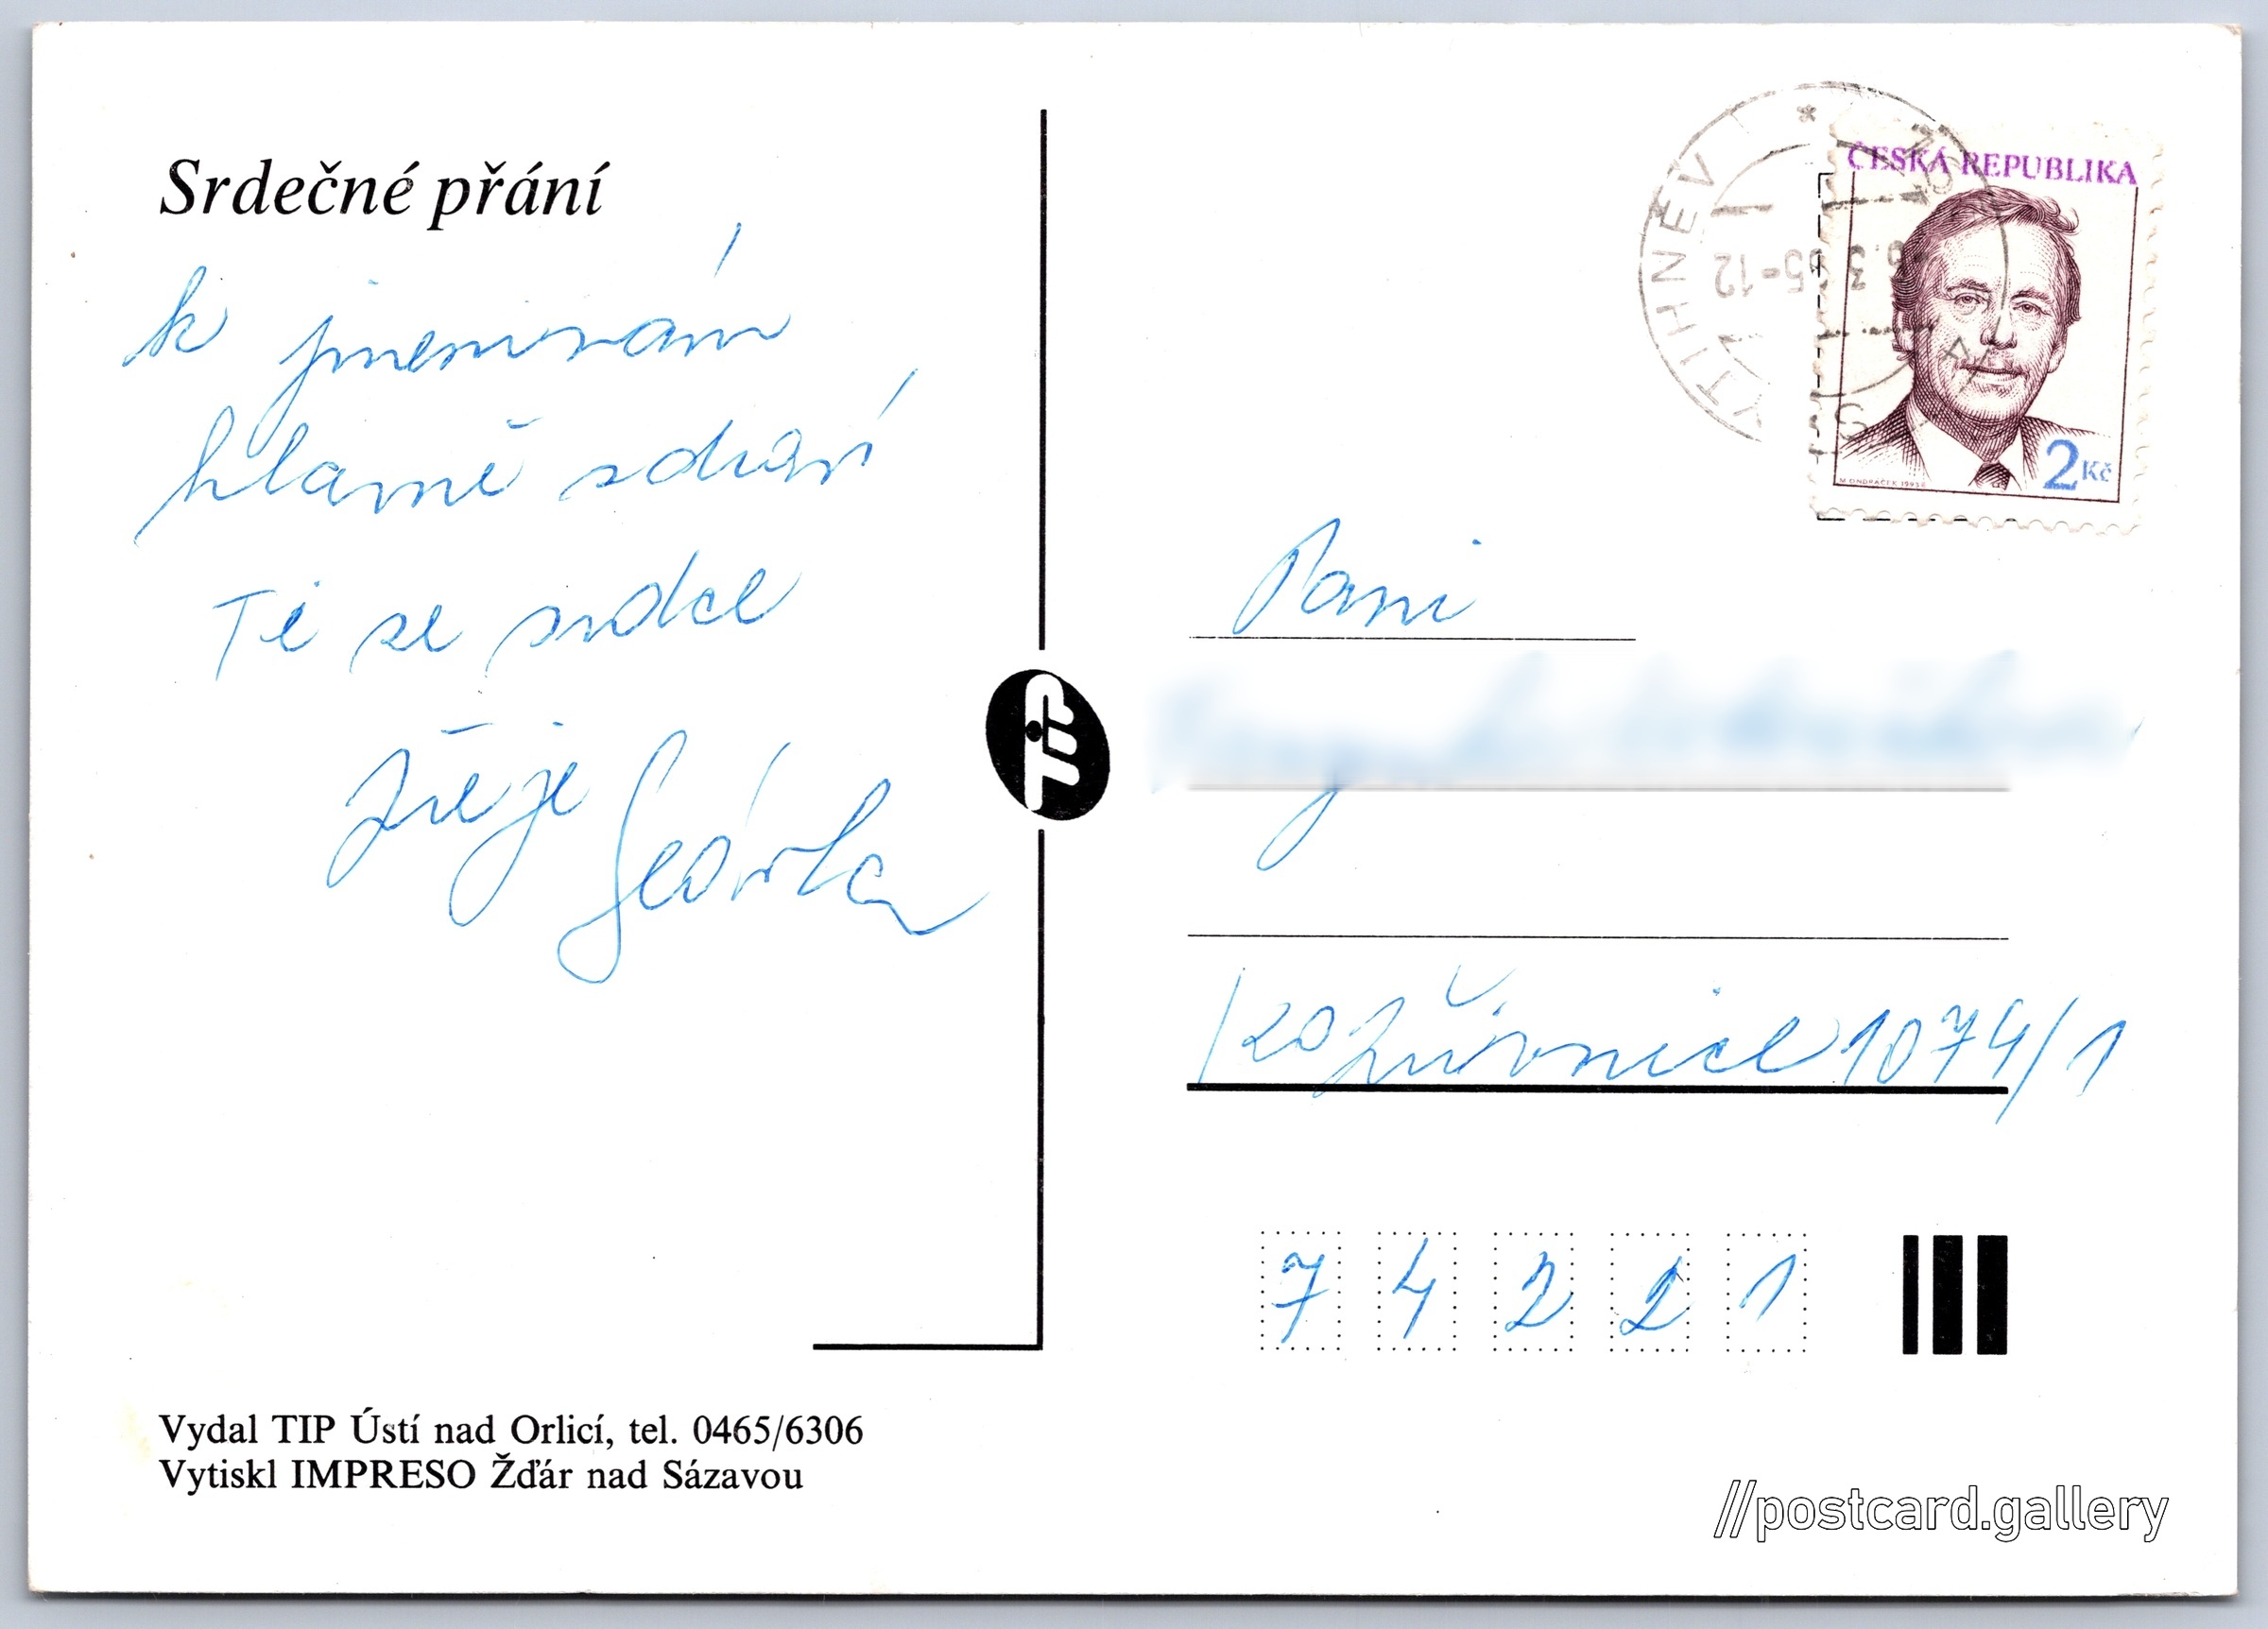 Srdečné přání
k jmeninám
hlavně zdraví
Ti ze srdce
přeje
ČESKÁ REPUBLIKA
2 Kč
M. ONDRÁČEK 1993
Paní
742 21
Vydal TIP Ústí nad Orlicí, tel. 0465/6306
Vytiskl IMPRESO Žďár nad Sázavou
//postcard.gallery